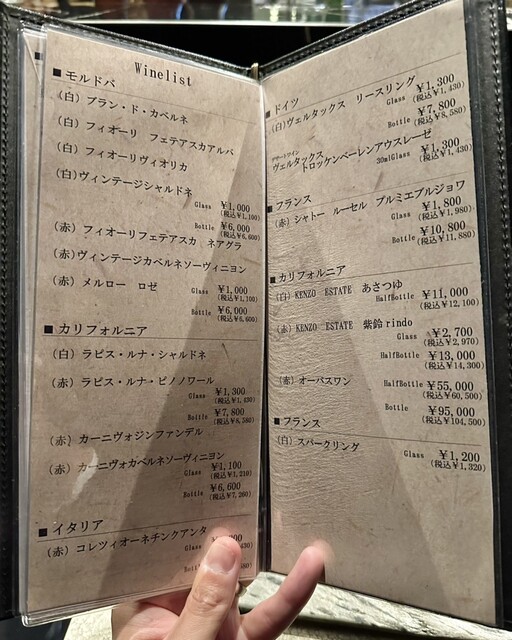 Winelist
■モルドバ
(白) ブラン・ド・カベルネ
(白) フィオーリ　フェテアスカアルバ
(白) フィオーリヴィオリカ
(白)ヴィンテージシャルドネ
Glass ¥1,000
(税込¥1,100)
Bottle ¥6,000
(税込¥6,600)
(赤) フィオーリフェテアスカ　ネアグラ
(赤)ヴィンテージカベルネソーヴィニヨン
(赤) メルロー　ロゼ
Glass ¥1,000
(税込¥1,100)
Bottle ¥6,000
(税込¥6,600)
■カリフォルニア
(白) ラピス・ルナ・シャルドネ
(赤) ラピス・ルナ・ピノノワール
Glass ¥1,300
(税込¥1,430)
Bottle ¥7,800
(税込¥8,580)
(赤) カーニヴォジンファンデル
(赤) カーニヴォカベルネソーヴィニヨン
Glass ¥1,100
(税込¥1,210)
Bottle ¥6,600
(税込¥7,260)
■イタリア
(赤) コレツィオーネチンクアンタ
Glass
■ドイツ
(白)ヴェルタックス　リースリング
Glass ¥1,300
(税込¥1,430)
Bottle ¥7,800
(税込¥8,580)
デザートワイン
ヴェルタックス　トロッケンベーレンアウスレーゼ
30mlGlass ¥1,300
(税込¥1,430)
■フランス
(赤) シャトー　ルーセル　プルミエブルジョワ
Glass ¥1,800
(税込¥1,980)
Bottle ¥10,800
(税込¥11,880)
■カリフォルニア
(白) KENZO　ESTATE　あさつゆ
HalfBottle ¥11,000
(税込¥12,100)
(赤) KENZO　ESTATE　紫鈴rindo
Glass ¥2,700
(税込¥2,970)
HalfBottle ¥13,000
(税込¥14,300)
(赤) オーパスワン
HalfBottle ¥55,000
(税込¥60,500)
Bottle ¥95,000
(税込¥104,500)
■フランス
(白) スパークリング
Glass ¥1,200
(税込¥1,320)